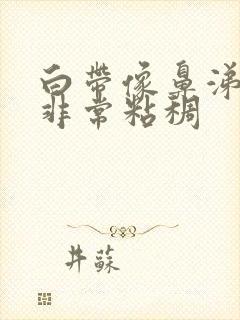 白带像鼻涕
非常粘稠
井蘇